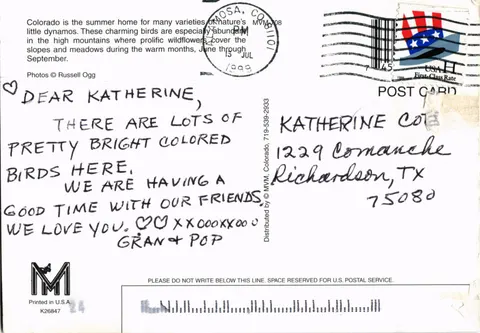 Colorado is the summer home for many varieties of nature's
little dynamos. These charming birds are especially abundant
in the high mountains where prolific wildflowers cover the
slopes and meadows during the warm months, June through
September.
Photos © Russell Ogg
MVM
ALAMOSA, CO 81101
PM
15 JUL
1998
USA H
First-Class Rate
POST CARD
DEAR KATHERINE,
THERE ARE LOTS OF
PRETTY BRIGHT COLORED
BIRDS HERE.
WE ARE HAVING A
GOOD TIME WITH OUR FRIENDS.
WE LOVE YOU. ♡♡XXOOOXXOOO
GRAN & POP
Distributed by © MVM, Colorado, 719-539-2933
KATHERINE
1229 Comanche
Richardson, TX
75080
MM
Printed in U.S.A.
K26847
24
PLEASE DO NOT WRITE BELOW THIS LINE. SPACE RESERVED FOR U.S. POSTAL SERVICE.